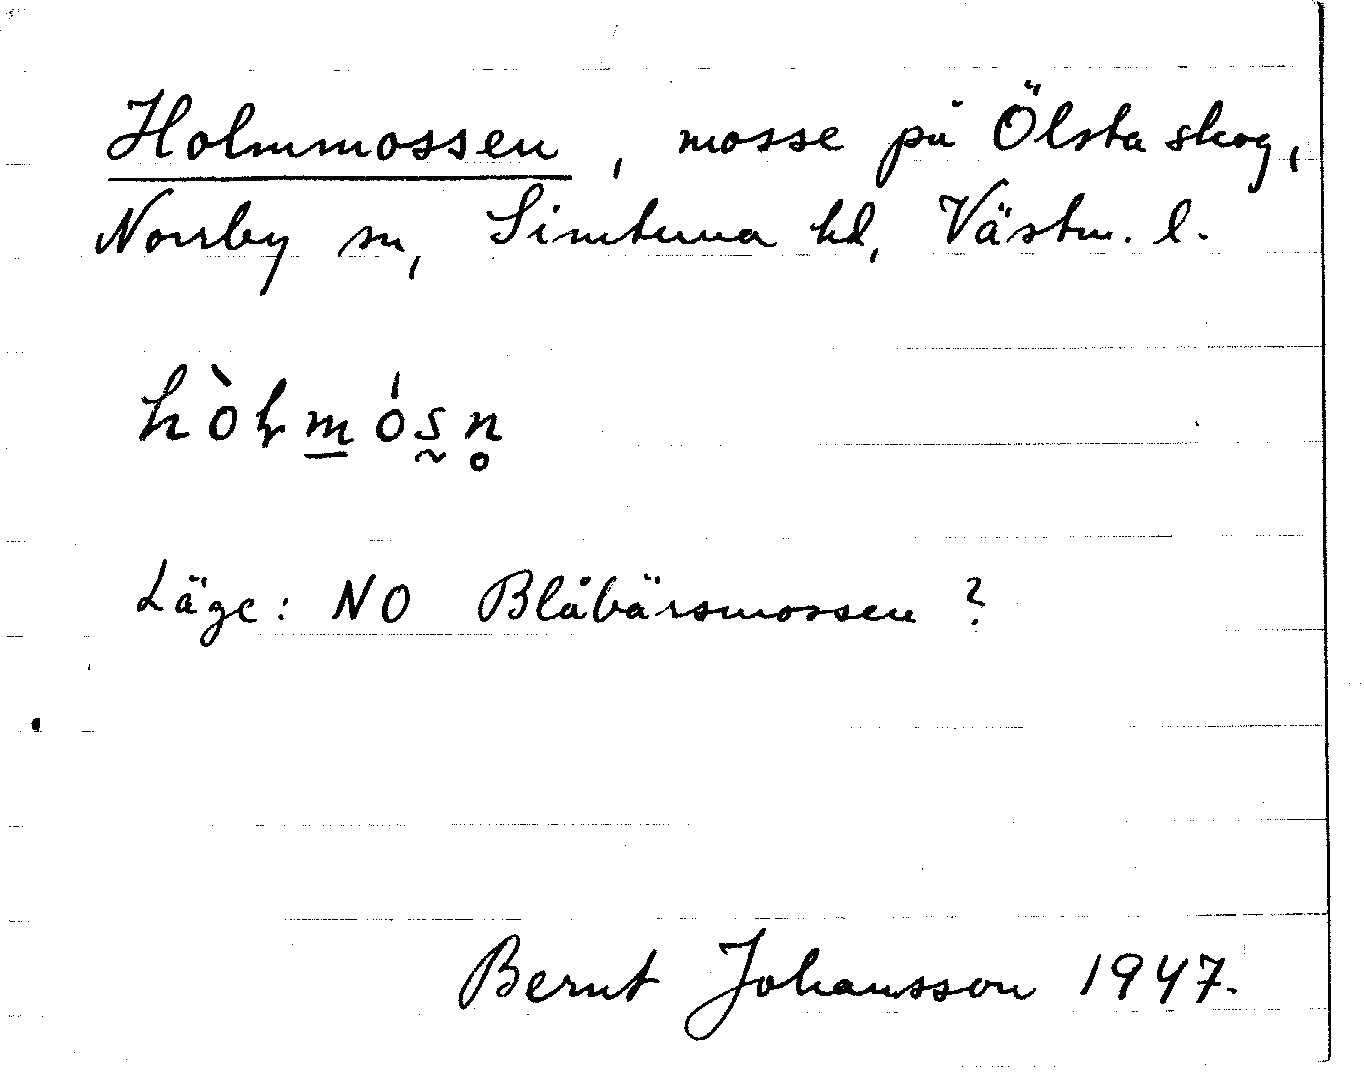 Holmmossen, mosse på Ölsta skog,
Norrby sn, Simtuna hd, Västm. l.
hòɫm̲ós̰n̥
Läge: NO Blåbärsmossen ?
Bernt Johansson 1947.